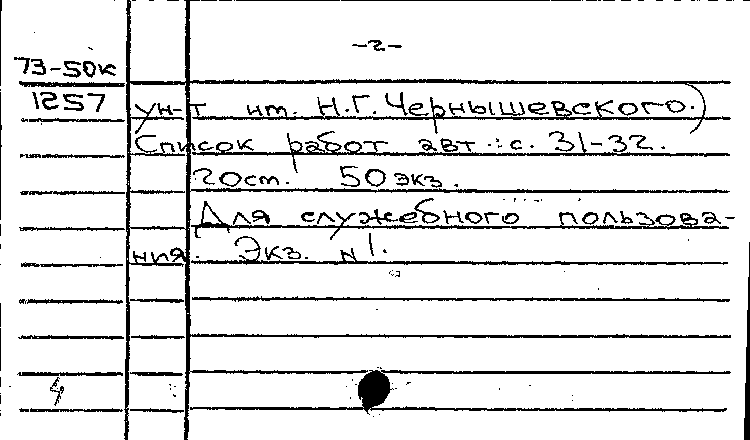 -2-
73-50к
1257
ун-т им. Н.Г. Чернышевского.)
Список работ авт.: с. 31-32.
20см. 50 экз.
Для служебного пользова-
ния. Экз. N 1.
4